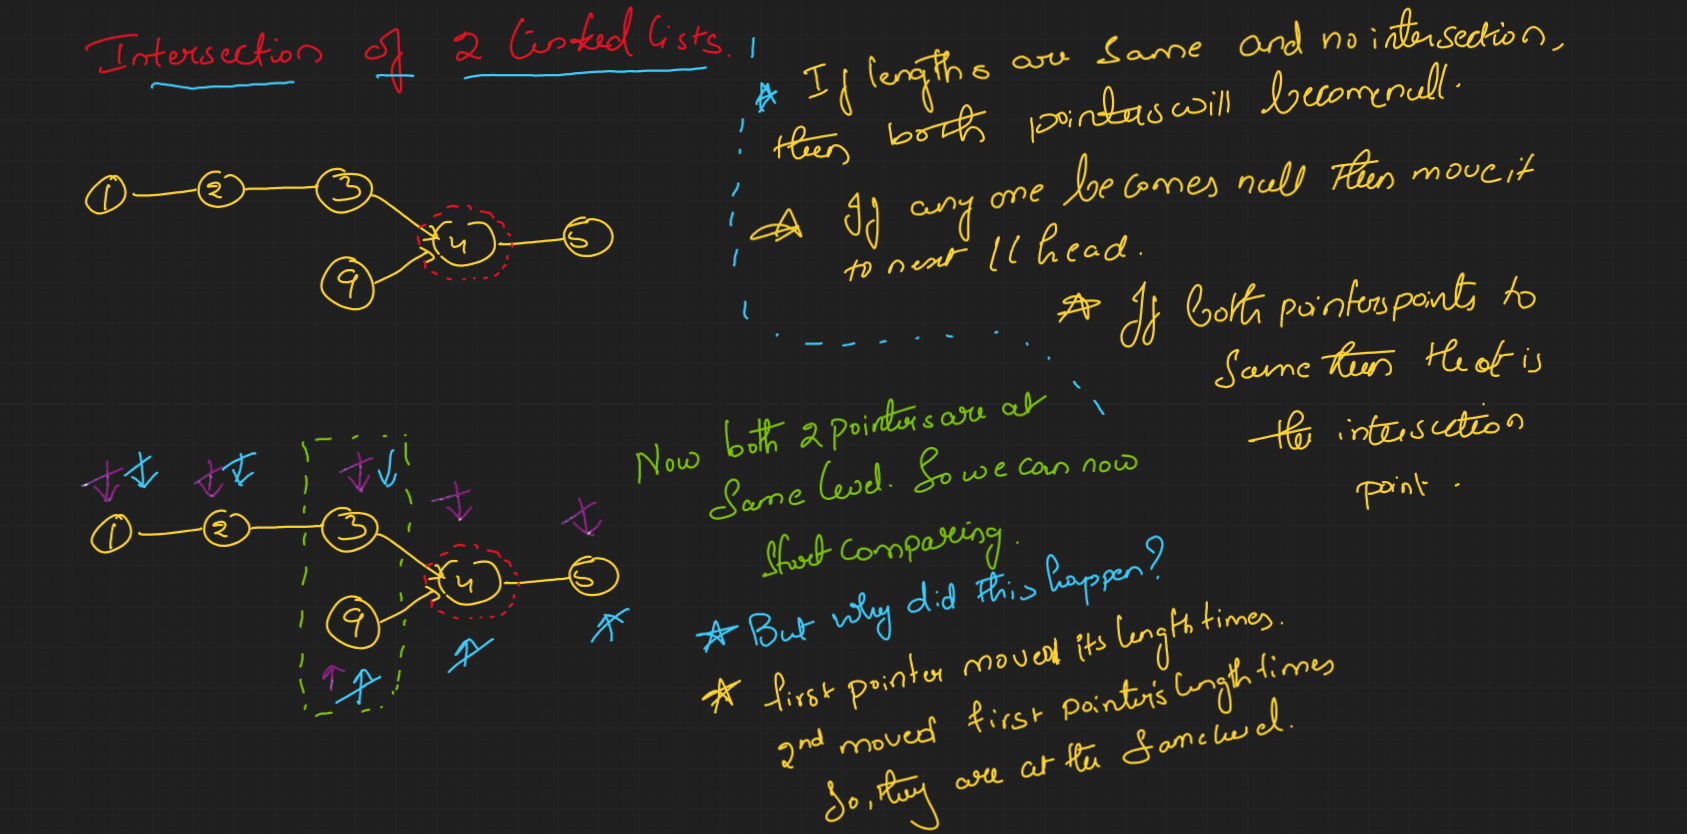 Intersection of 2 Linked Lists.
If lengths are same and no intersection,
then both pointers will become null.
If any one becomes null then move it
to next ll head.
If both pointers points to
same then that is
the intersection
point.
1 2 3
4 5
9
Now both 2 pointers are at
same level. So we can now
start comparing.
1 2 3
4 5
9
But why did this happen?
first pointer moved its length times.
2nd moved first pointer's length times
So, they are at the same level.